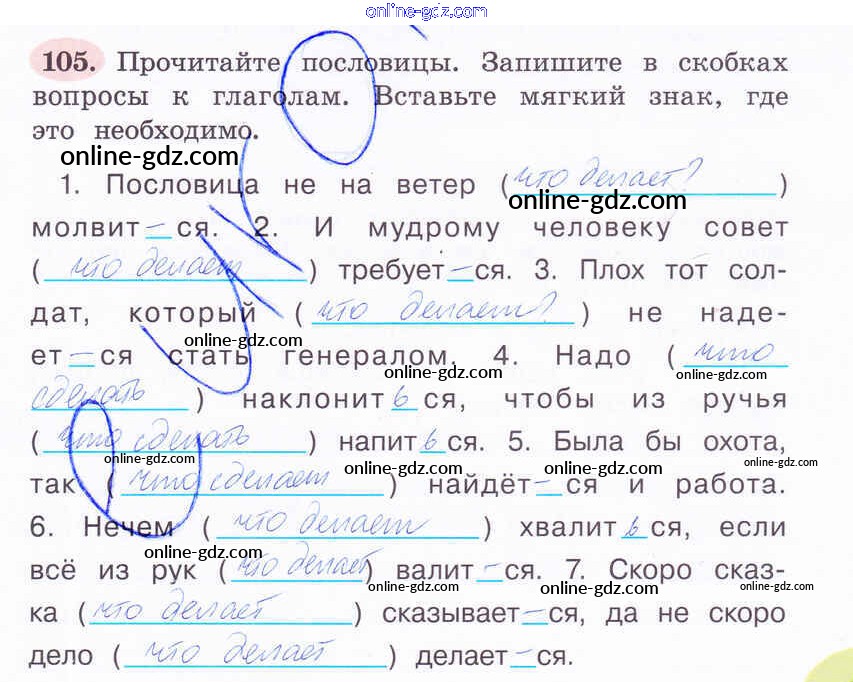 online-gdz.com
105. Прочитайте пословицы. Запишите в скобках
вопросы к глаголам. Вставьте мягкий знак, где
это необходимо.
online-gdz.com
1. Пословица не на ветер (что делает?)
online-gdz.com
молвит–ся. 2. И мудрому человеку совет
(что делает) требует–ся. 3. Плох тот сол-
online-gdz.com
online-gdz.com
дат, который (что делает?) не наде-
online-gdz.com
ет–ся стать генералом. 4. Надо (что
online-gdz.com
online-gdz.com
сделать) наклонит ь ся, чтобы из ручья
online-gdz.com
(что сделать) напит ь ся. 5. Была бы охота,
online-gdz.com
online-gdz.com
online-gdz.com
так (что сделает) найдёт–ся и работа.
online-gdz.com
6. Нечем (что делает) хвалит ь ся, если
online-gdz.com
всё из рук (что делает) валит–ся. 7. Скоро сказ-
online-gdz.com
online-gdz.com
ка (что делает) сказывает–ся, да не скоро
online-gdz.com
дело (что делает) делает–ся.